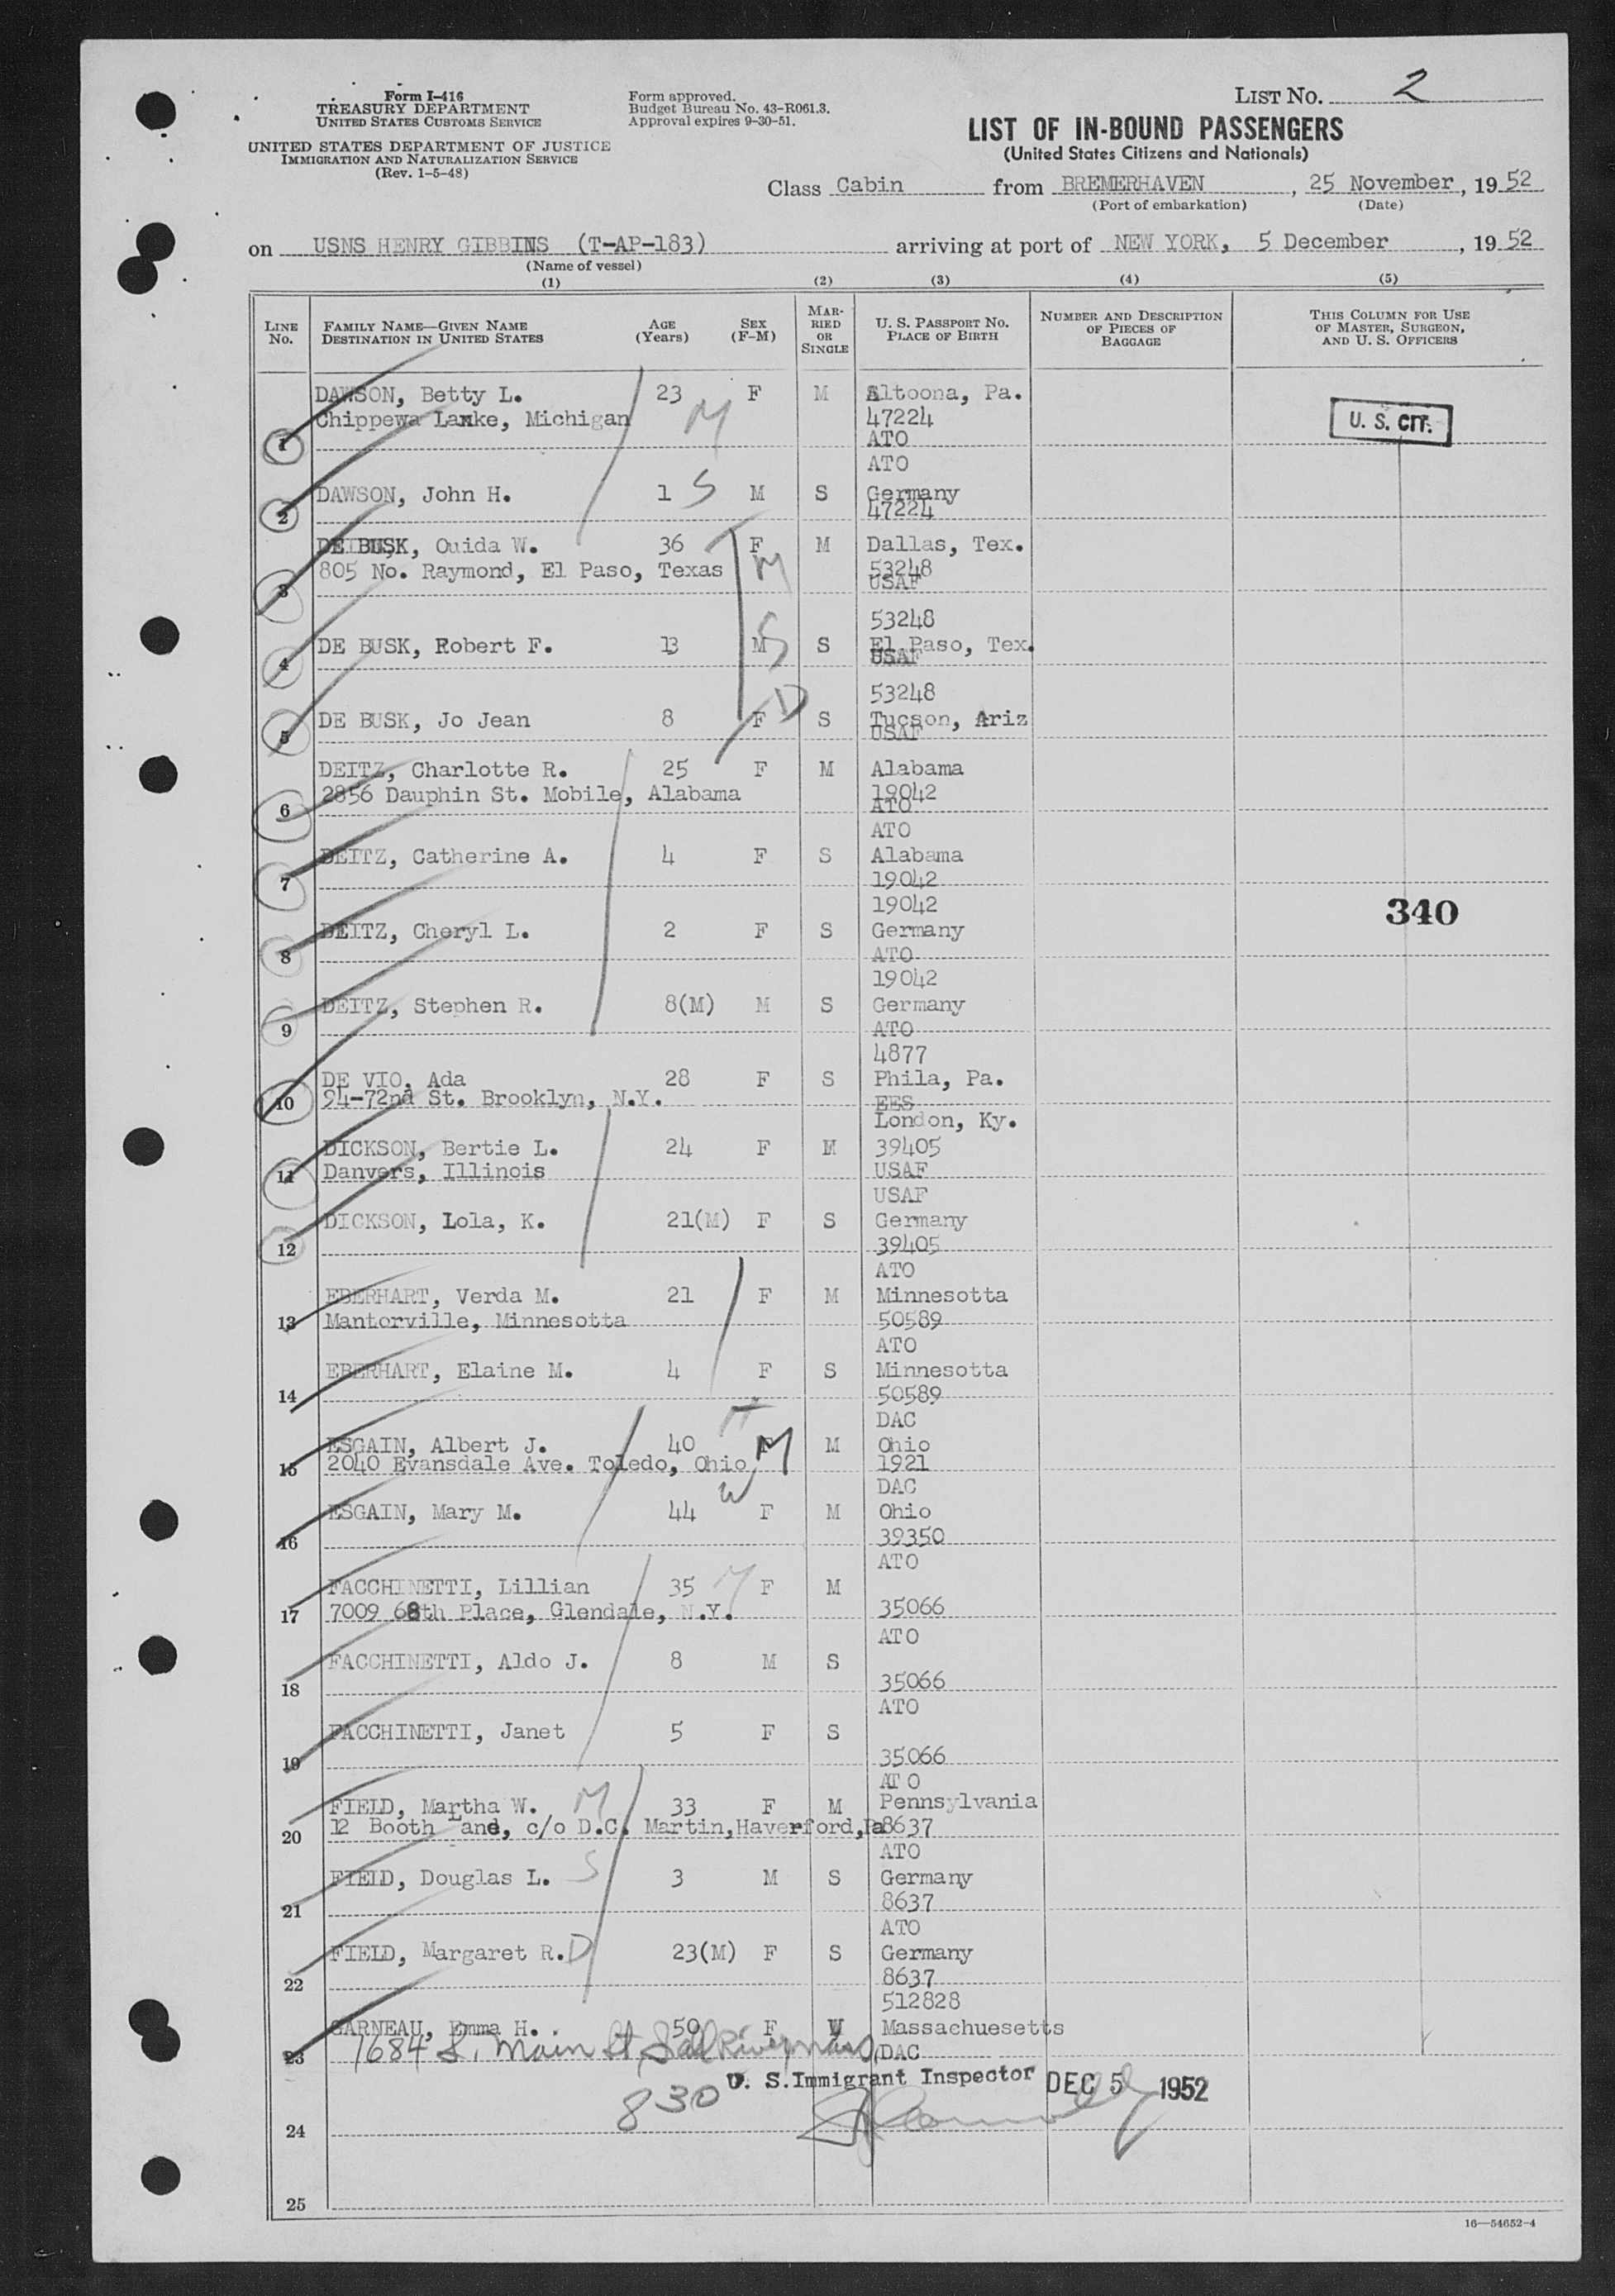 Form I-416
TREASURY DEPARTMENT
UNITED STATES CUSTOMS SERVICE
UNITED STATES DEPARTMENT OF JUSTICE
IMMIGRATION AND NATURALIZATION SERVICE
(Rev. 1-5-48)
Form approved.
Budget Bureau No. 43-R061.3.
Approval expires 9-30-51.
LIST NO. 2
LIST OF IN-BOUND PASSENGERS
(United States Citizens and Nationals)
Class Cabin from BREMERHAVEN, 25 November, 1952
(Port of embarkation) (Date)
on USNS HENRY GIBBINS (T-AP-183) arriving at port of NEW YORK, 5 December, 1952
(Name of vessel)
(1) (2) (3) (4) (5)
LINE NO.
FAMILY NAME—GIVEN NAME
DESTINATION IN UNITED STATES
AGE (Years)
SEX (F-M)
MARRIED OR SINGLE
U. S. PASSPORT NO.
PLACE OF BIRTH
NUMBER AND DESCRIPTION OF PIECES OF BAGGAGE
THIS COLUMN FOR USE OF MASTER, SURGEON, AND U. S. OFFICERS
DAWSON, Betty L. 23 F M Altoona, Pa.
Chippewa Lake, Michigan M 47224
1 ATO
U. S. CIT.
ATO
DAWSON, John H. 1 S M S Germany
2 47224
DE BUSK, Ouida W. 36 F M Dallas, Tex.
805 No. Raymond, El Paso, Texas M 53248
3 USAF
53248
DE BUSK, Robert F. 13 M S S El Paso, Tex.
4 USAF
53248
DE BUSK, Jo Jean 8 F D S Tucson, Ariz
5 USAF
DEITZ, Charlotte R. 25 F M Alabama
2856 Dauphin St. Mobile, Alabama 19042
6 ATO
ATO
DEITZ, Catherine A. 4 F S Alabama
7 19042
19042
340
DEITZ, Cheryl L. 2 F S Germany
8 ATO
19042
DEITZ, Stephen R. 8(M) M S Germany
9 ATO
4877
DE VIO, Ada 28 F S Phila, Pa.
10 94-72nd St. Brooklyn, N.Y. EES
London, Ky.
DICKSON, Bertie L. 24 F M 39405
11 Danvers, Illinois USAF
USAF
DICKSON, Lola, K. 21(M) F S Germany
12 39405
ATO
EBERHART, Verda M. 21 F M Minnesotta
13 Mantorville, Minnesotta 50589
ATO
EBERHART, Elaine M. 4 F S Minnesotta
14 50589
DAC
ESGAIN, Albert J. 40 M M Ohio
15 2040 Evansdale Ave. Toledo, Ohio 1921
W DAC
ESGAIN, Mary M. 44 F M Ohio
16 39350
ATO
FACCHINETTI, Lillian 35 M F M
17 7009 68th Place, Glendale, N.Y. 35066
ATO
FACCHINETTI, Aldo J. 8 M S
18 35066
ATO
FACCHINETTI, Janet 5 F S
19 35066
ATO
FIELD, Martha W. M 33 F M Pennsylvania
20 12 Booth Lane, c/o D.C. Martin,Haverford,Pa 8637
ATO
FIELD, Douglas L. S 3 M S Germany
21 8637
ATO
FIELD, Margaret R. D 23(M) F S Germany
22 8637
512828
GARNEAU, Emma H. 50 F W Massachuesetts
23 1684 S. Main St, Fall River, Mass, DAC
U. S. Immigrant Inspector DEC 5 1952
830
24
25
16—54652-4